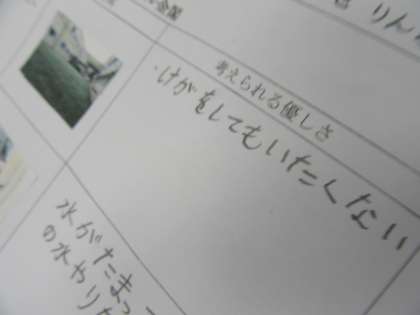 考えられる優しさ
・けがをしてもいたくない
水がたまっ
の水やり